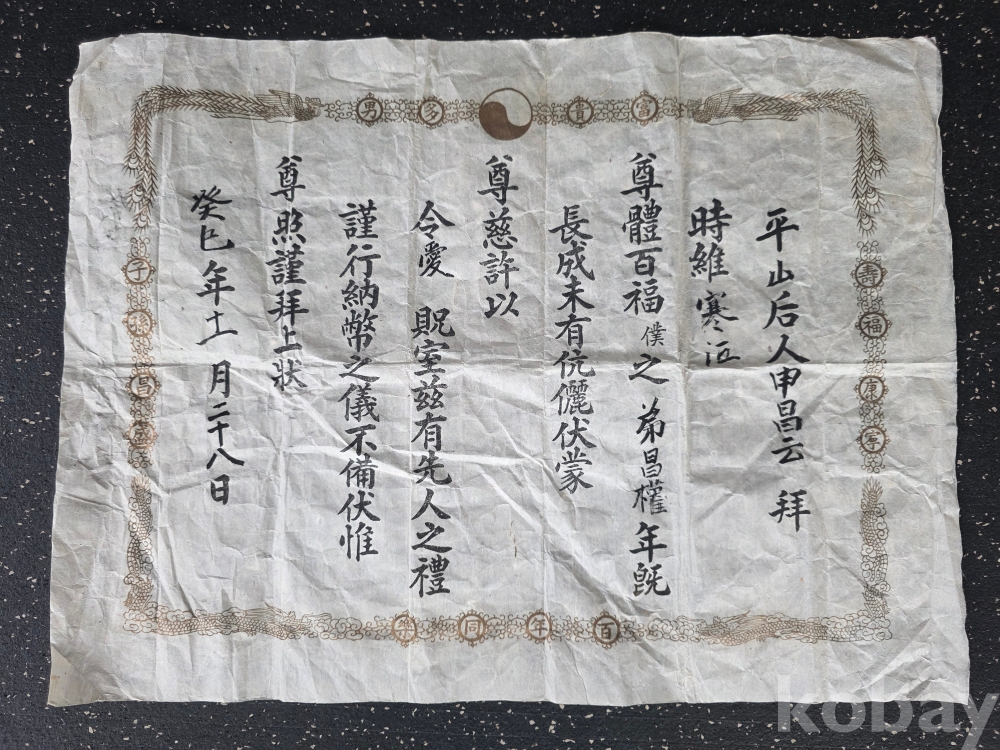 富貴多男
壽福康寧
平山后人申昌云 拜
時維寒沍
尊體百福 僕之弟昌權年旣
長成未有伉儷伏蒙
尊慈許以
令愛 貺室玆有先人之禮
謹行納幣之儀不備伏惟
尊照謹拜上狀
癸巳年十一月二十八日
子孫昌盛
百年同樂
kobay